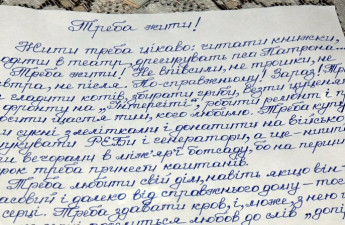 Треба жити!
Жити треба цікаво: читати книжки,
ходити в театр, дресирувати пса Патрона...
Треба жити! Не впівсили, не трошки, не
завтра, не після. По-справжньому! Зараз! Тр
гладити котів, збирати гриби, везти цуценя
фронту в "Інтерсіті", робити ремонт і
щастя тим, кого любимо. Треба купу
сукні з лелітками і донатити на військо
шукувати РЕБи і генератори, а ще – нишп
вечорами в між'ярі ботсаду, бо на перши
рок треба принести каштанів.
Треба любити свій дім, навіть якщо він
часовий і далеко від справжнього дому – тос
серці. Треба здавати кров, і, може, з нею
любов до слів "допі